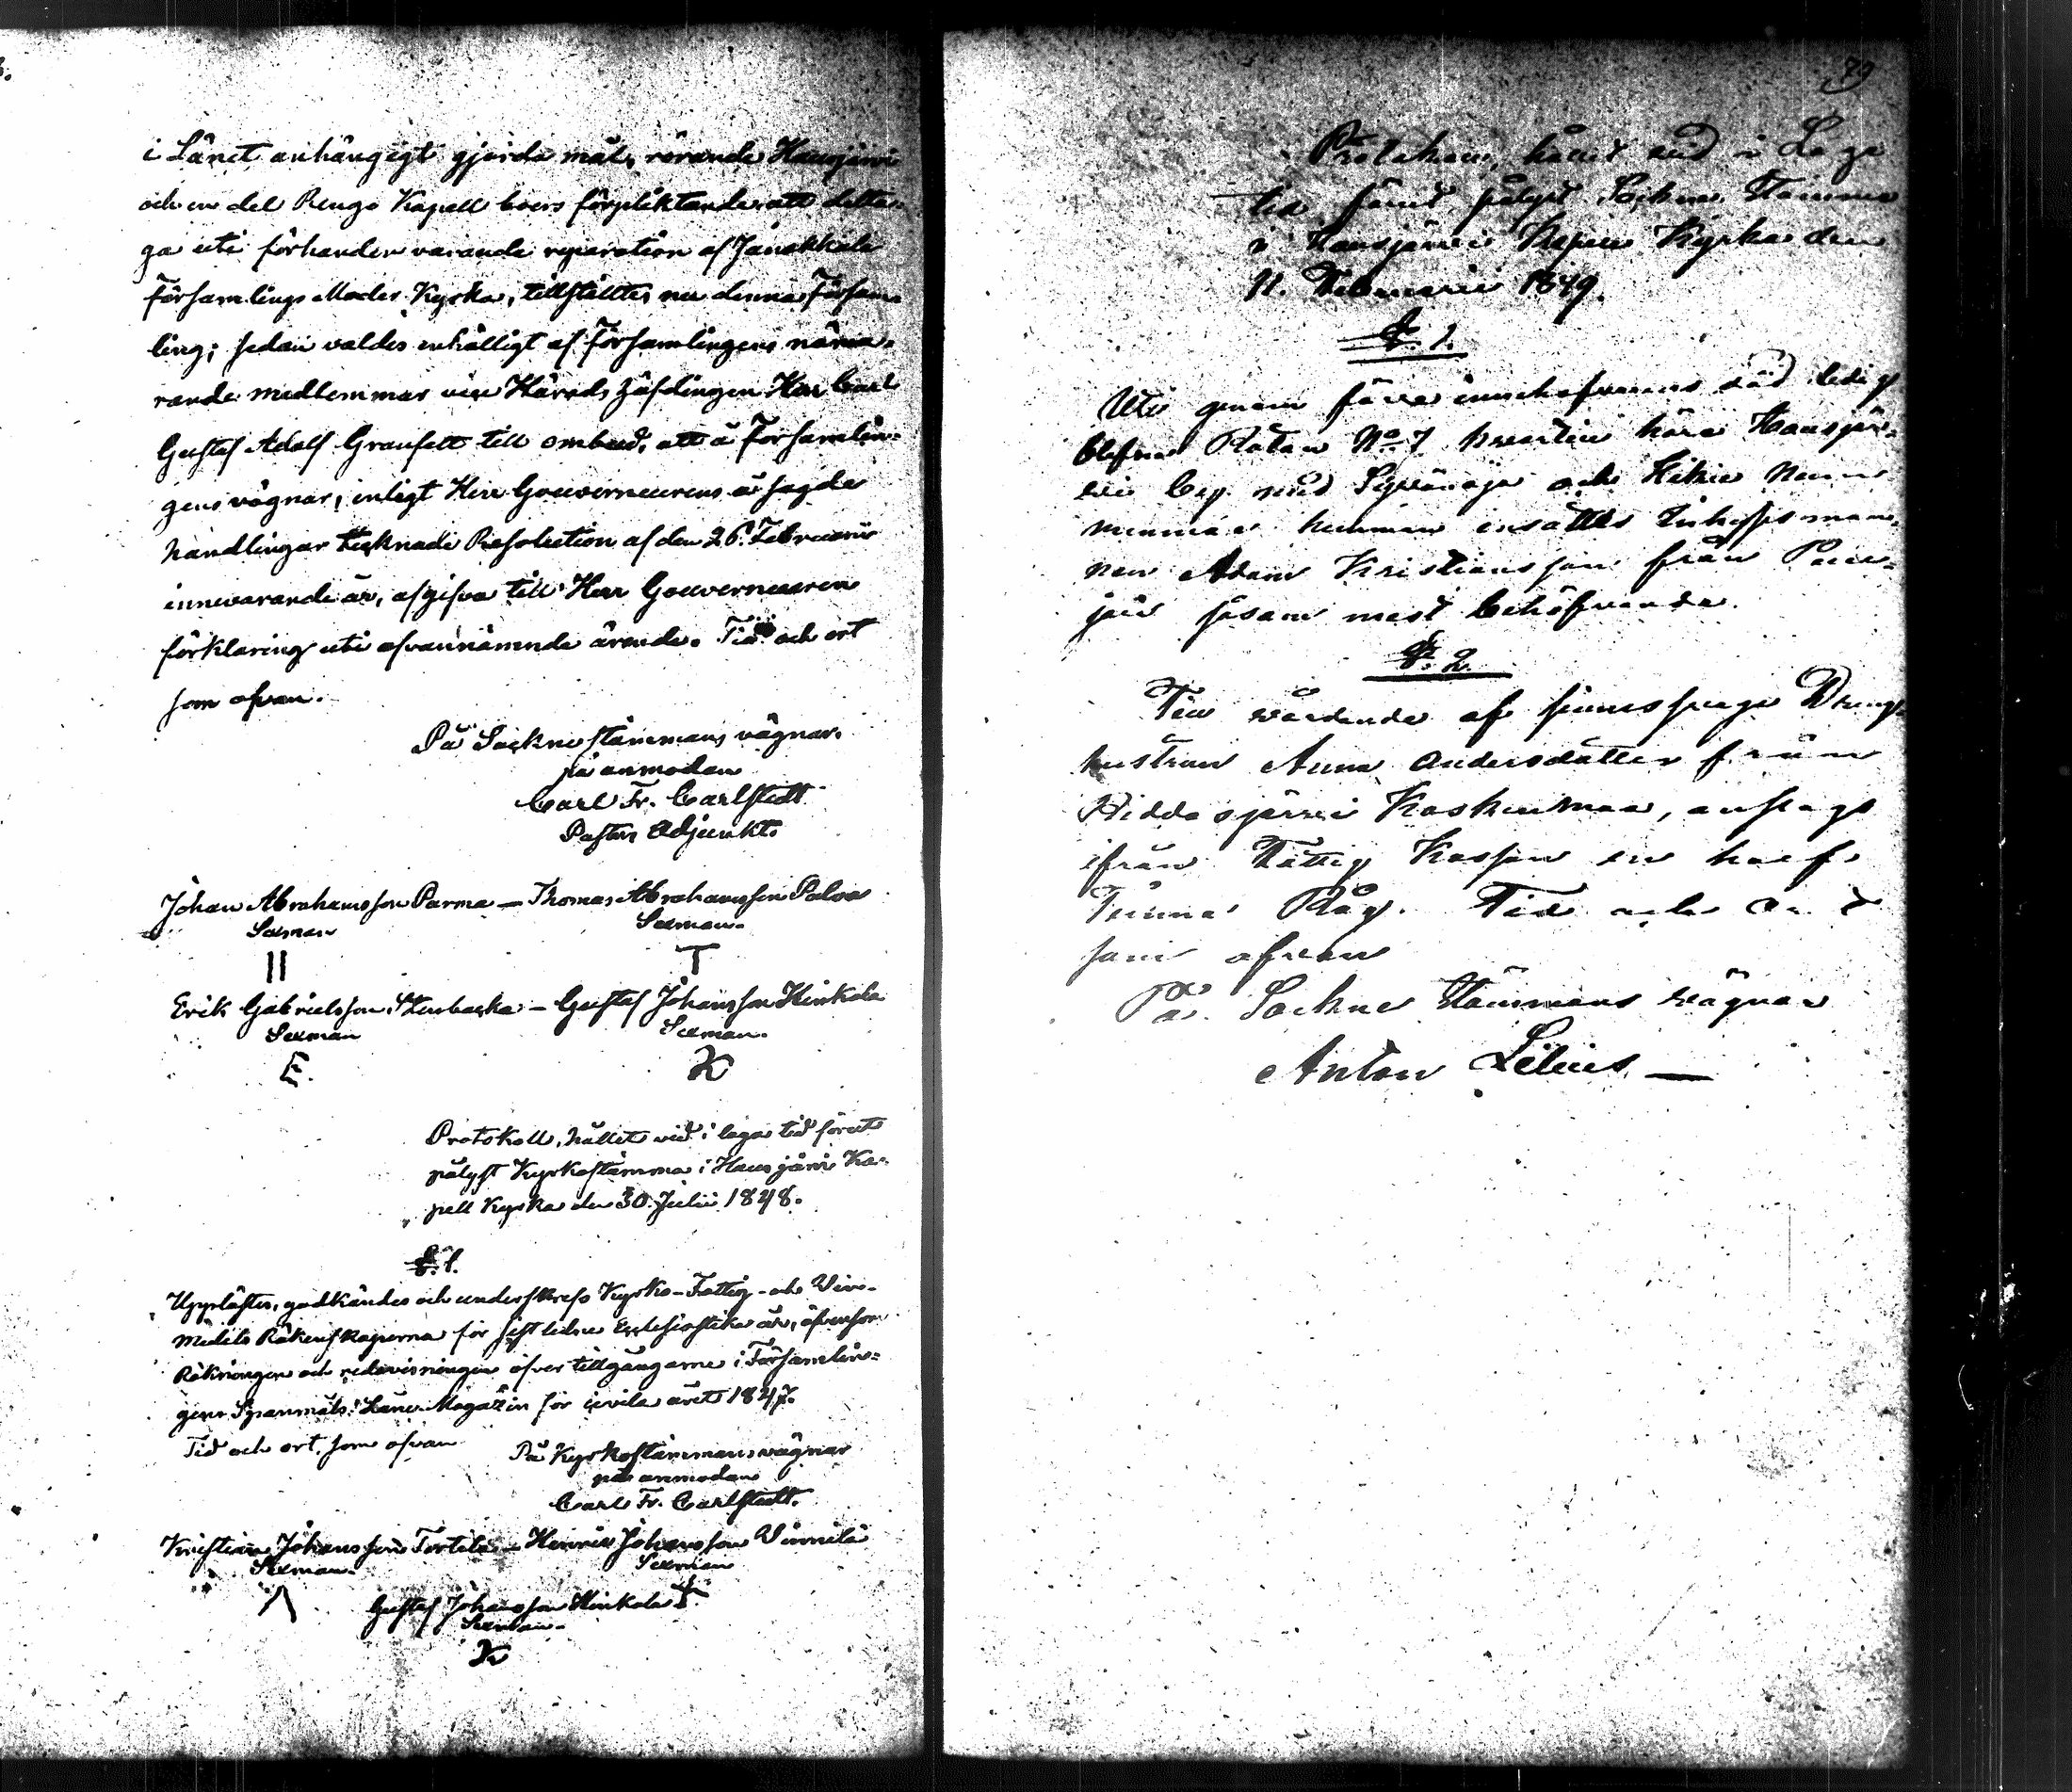 i Länet anhängigt gjorda mål, rörande Hausjärvi
och en del Rengo Kapell boers förpliktande att delta-
ga uti förhanden varande reparation af Janakkala
Församlings Moder Kyrka, tillställtes nu denna Försam-
ling; sedan valdes enhälligt af Församlingens närva-
rande medlemmar vice Härads Höfdingen Herr Carl
Gustaf Adolf Granfelt till ombud, att å Församlin-
gens vägnar, enligt Herr Gouverneurens å sagde
handlingar tecknade Resolution af den 26. Februarii
innevarande år, afgifva till Herr Gouverneuren
förklaring uti ofvannämnde ärende. Tid och ort
som ofvan.
På Sockne stämmans vägnar.
på anmodan
Carl Fr. Carlstedt
Pastors Adjunkt.
Johan Abrahamsson Parma — Thomas Abrahamsson Palva
Sexman Sexman.
II T
Erik Gabrielsson — Gustaf Johansson Hinkala
Sexman Sexman.
E. K
Protokoll, hållet vid i laga tid förut
pålyst Kyrkostämma i Hausjärvi Ka-
pell Kyrka den 30. Julii 1848.
§. 1.
Upplästes, godkändes och underskrefs Kyrko- Fattig- och Vin-
medels Räkenskaperna för sist ledne Ecclesiastika år, äfvensom
Räkningen och redovisningen öfver tillgångarne i Församlin-
gens Spanmåls Låne-Magazin för civila året 1847.
Tid och ort, som ofvan
På Kyrkostämmans vägnar
på anmodan
Carl Fr. Carlstedt.
Kristian Johansson Torttila — Henrik Johansson
Sexman. Sexman
Gustaf Johansson Hinkala
Sexman.
K
79
Protokoll hållit vid i Laga
tid förut pålyst Sockne Stämma
i Hausjärvi Kapell Kyrka den
11. Februarii 1849.
§. 1.
Uti genom förra innehafvarens död ledig
blefne Rotan No 7
och Hikiä
hemman insattes Inhysisman-
nen Adam Kristiansson från
såsom mest behöfvande.
§. 2.
Till vårdande af sinnessvaga Dräng
hustrun Anna Andersdotter från
järvi Koskenmaa, anslogs
ifrån Fattig Kassan en half
Tunna Råg. Tid och Ort
som ofvan
På Sockne Stämmans vägnar
Anton Lilius —